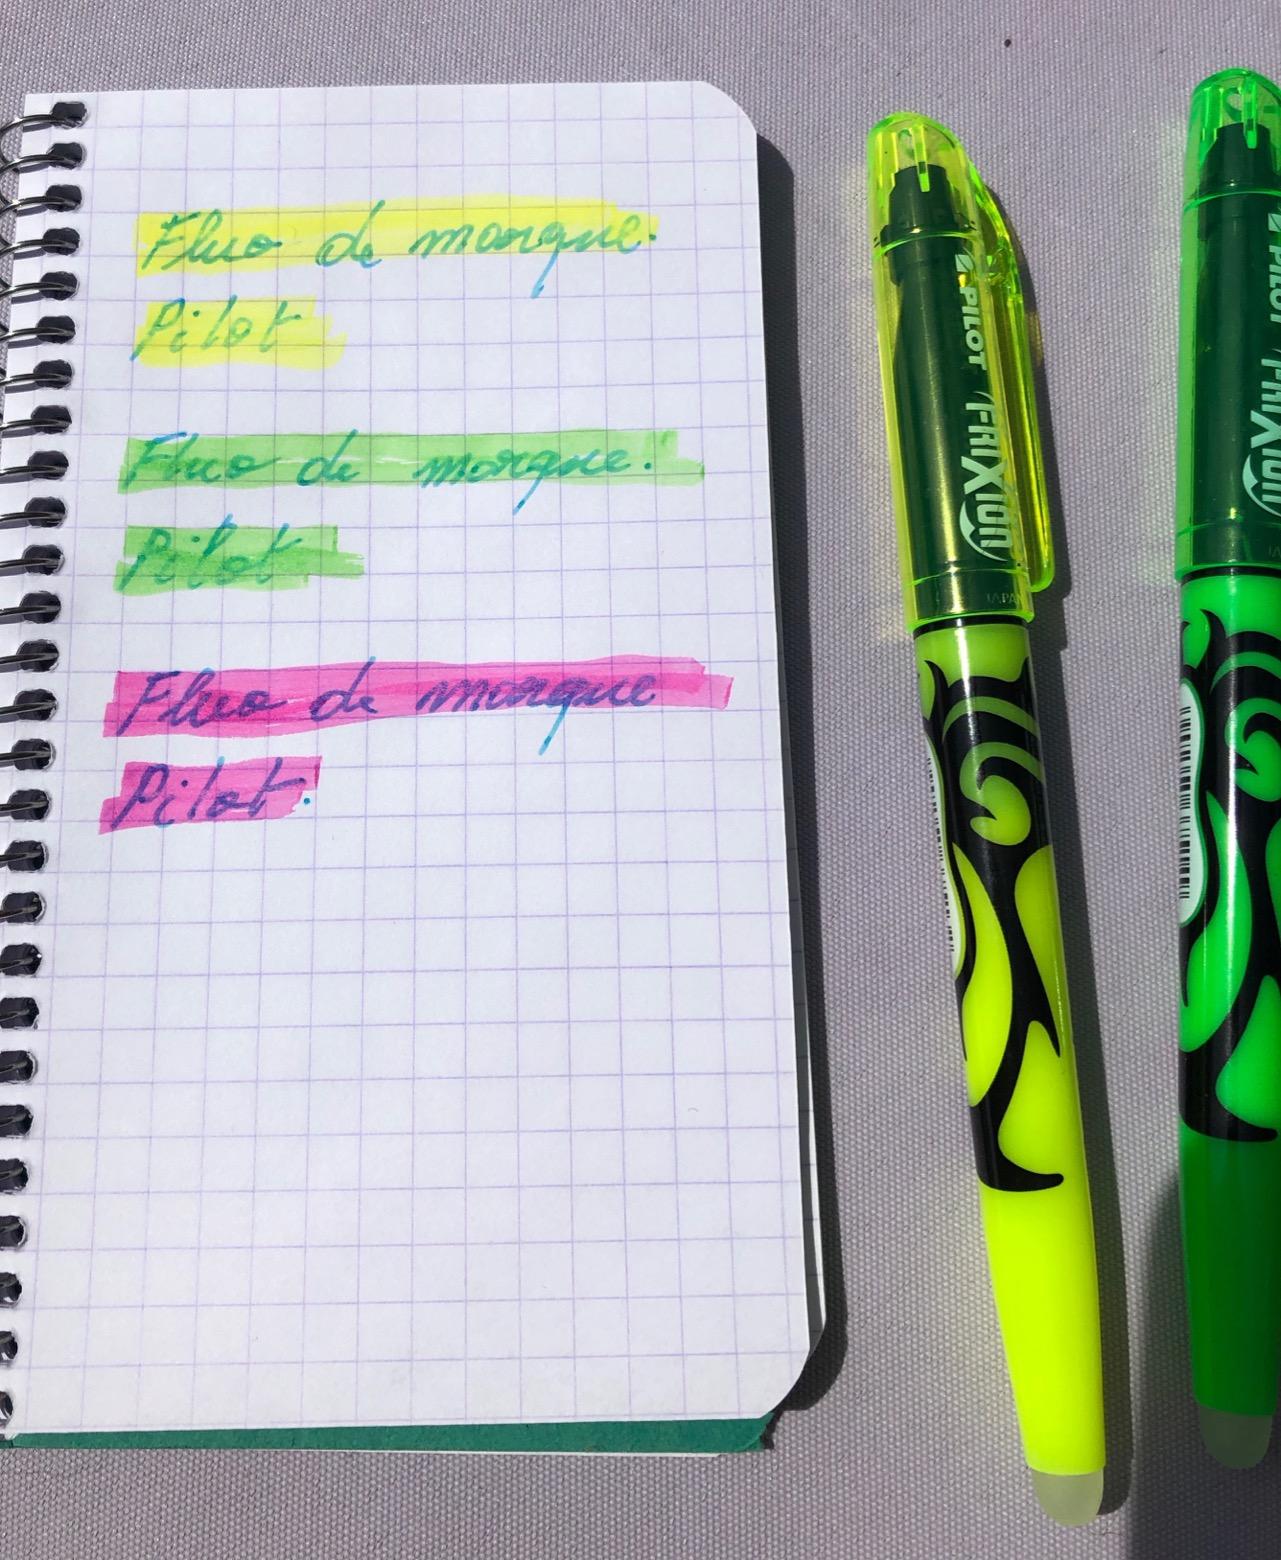 Fluo de marque.
Pilot
Fluo de marque.
Pilot
Fluo de marque
Pilot.
PILOT FRIXION
JAPAN
PILOT FRIXION